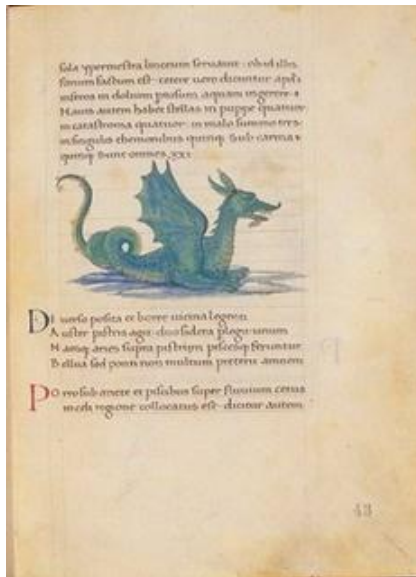 sola ypermestra linceum seruauit · ob id illis
fanum factum est · cetere uero dicuntur apd i
inferos in dolium aquam ingerere ·
Nauis autem habet stellas in puppe quatuor
in catastroma quatuor · in malo summo tres
in singulis themonibus quinq; Sub carina
quinq; Sunt omnes xxi
DI uerso posita et boree uicina legenti
A uster pistrin agit · duo sidera plegit unum
N amq; aries supra pistrim piscesq; feruntur
B ellua sed ponti non multum preterit amnem
PO rro sub ariete et piscibus super fluuium cetus
in celi regione collocatus est · dicitur autem
43